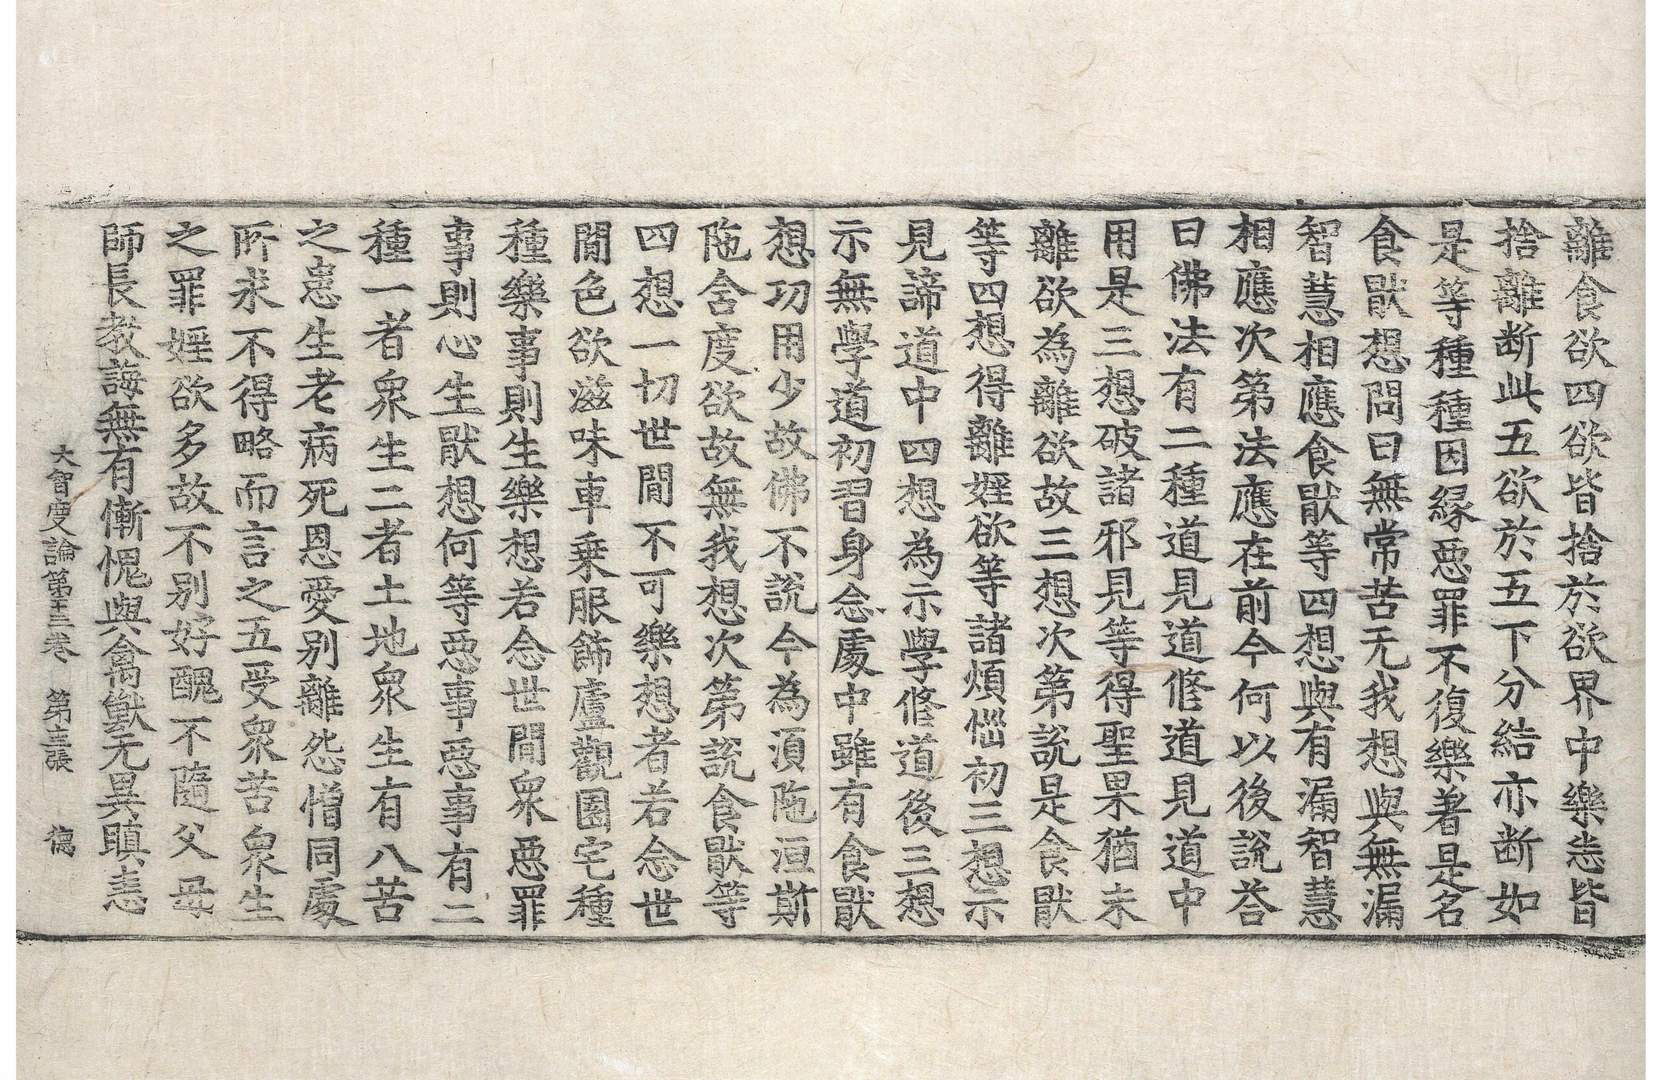 離食欲四欲皆捨於欲界中樂悉皆
捨離断此五欲於五下分結亦断如
是等種種因緣惡罪不復樂著是名
食猒想問曰無常苦无我想與無漏
智慧相應食猒等四想與有漏智慧
相應次第法應在前今何以後說荅
曰佛法有二種道見道修道見道中
用是三想破諸邪見等得聖果猶未
離欲為離欲故三想次第說是食猒
等四想得離婬欲等諸煩惱初三想示
見諦道中四想為示學修道後三想
示無學道初習身念處中雖有食猒
想功用少故佛不說今為須陁洹斯
陁含度欲故無我想次第說食猒等
四想一切世間不可樂想者若念世
間色欲滋味車乗服飾廬觀園宅種
種樂事則生樂想若念世間衆惡罪
事則心生猒想何等惡事惡事有二
種一者衆生二者土地衆生有八苦
之患生老病死恩愛別離怨憎同處
所求不得略而言之五受衆苦衆生
之罪婬欲多故不別好醜不隨父母
師長教誨無有慚愧與禽獸无異瞋恚
大智度論第二十三卷 第三張 德